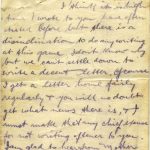 I think it is high
time I wrote to you
before but there is a
disinclination to do any writing
at this game I dont know why
but we cant settle down to
write a decent letter. Of course
I get a letter home fairly
regularly & you will no doubt
get what news there is, & I
must make that my excuse
for not writing oftener to you.
I am glad to hear